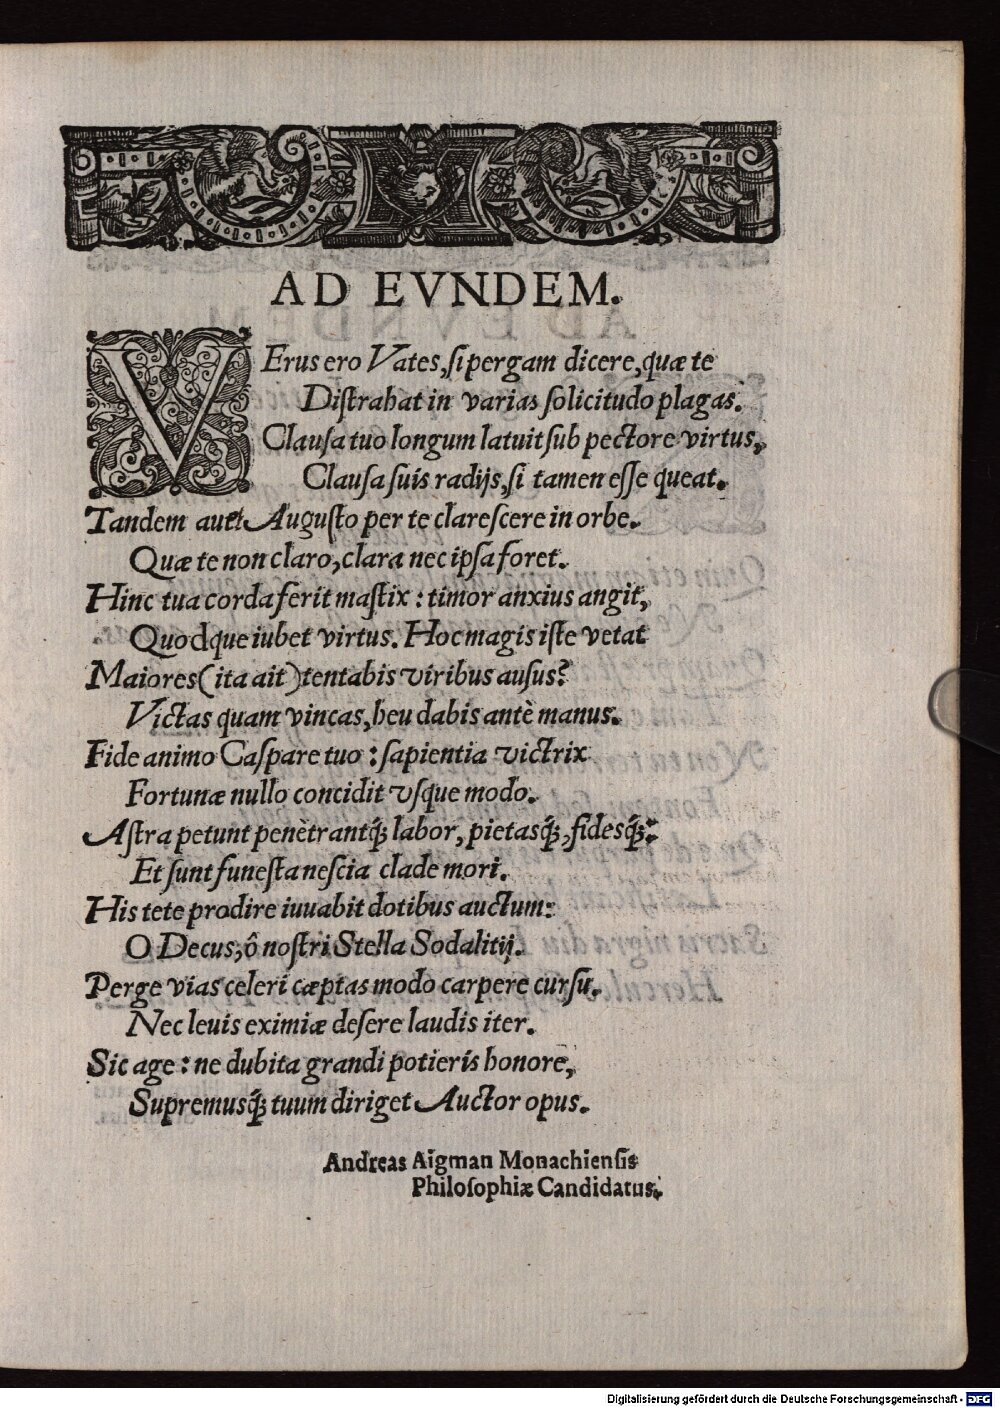 AD EVNDEM.
VErus ero Vates, ſi pergam dicere, quæ te
Diſtrahat in varias ſolicitudo plagas.
Clauſa tuo longum latuit ſub pectore virtus,
Clauſa ſuis radijs, ſi tamen eſſe queat.
Tandem auet Auguſto per te clareſcere in orbe.
Quæ te non claro, clara nec ipſa foret.
Hinc tua corda ferit maſtix: timor anxius angit,
Quodque iubet virtus. Hoc magis iſte vetat
Maiores (ita ait) tentabis viribus auſus?
Victas quam vincas, heu dabis antè manus.
Fide animo Caſpare tuo: ſapientia victrix
Fortunæ nullo concidit vſque modo.
Aſtra petunt penètrantq́; labor, pietasq́;, fidesq́;:
Et ſunt funeſta neſcia clade mori.
His tete prodire iuuabit dotibus auctum:
O Decus, ô noſtri Stella Sodalitij.
Perge vias celeri cæptas modo carpere curſu,
Nec leuis eximiæ deſere laudis iter.
Sic age: ne dubita grandi potieris honore,
Supremusq́; tuum diriget Auctor opus.
Andreas Aigman Monachienſis
Philoſophiæ Candidatus.
Digitalisierung gefördert durch die Deutsche Forschungsgemeinschaft - DFG